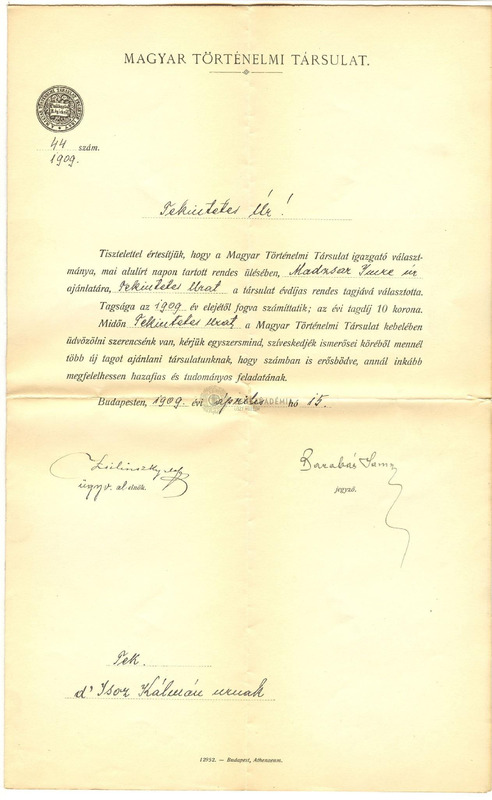 MAGYAR TÖRTÉNELMI TÁRSULAT.
44 szám.
1909.
Tekintetes Úr!
Tisztelettel értesítjük, hogy a Magyar Történelmi Társulat igazgató választ-
mánya, mai alulírt napon tartott rendes ülésében, Madzsar Imre úr
ajánlatára, Tekintetes Urat a társulat évdíjas rendes tagjává választotta.
Tagsága az 1909 év elejétől fogva számíttatik; az évi tagdíj 10 korona.
Midőn Tekintetes Urat a Magyar Történelmi Társulat kebelében
üdvözölni szerencsénk van, kérjük egyszersmind, szíveskedjék ismerősei köréből mennél
több új tagot ajánlani társulatunknak, hogy számban is erősbödve, annál inkább
megfelelhessen hazafias és tudományos feladatának.
Budapesten, 1909. évi április hó 15.
Zsilinszky
ügyv. alelnök.
Barabás Samu
jegyző.
Tek.
d' Isoz Kálmán urnak
12952. — Budapest, Athenaeum.